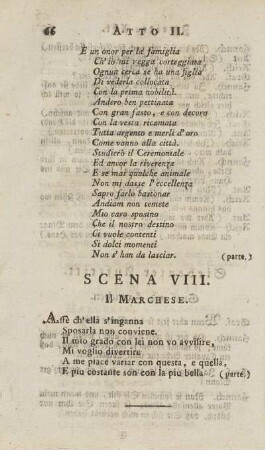 66 ATTO II.
E un onor per la famiglia
Ch'io mi vegga corteggiata
Ognun cerca se ha una figlia
Di vederla collocata
Con la prima nobiltà.
Anderò ben pettinata
Con gran fasto, e con decoro
Con la vesta ricamata
Tutta argento e merli d'oro
Come vanno alla città.
Studierò il Ceremoniale
Ed ancor la riverenza
E se mai qualche animale
Non mi dasse l'eccellenza
Saprò farlo bastonar
Andiam non temete
Mio caro sposino
Che il nostro destino
Ci vuole contenti
Sì dolci momenti
Non s'han da lasciar. (parte.)
SCENA VIII.
IL MARCHESE.
Affè ch'ella s'inganna
Sposarla non conviene.
Il mio grado con lei non vo avvilire,
Mi voglio divertire
A me piace variar con questa, e quella,
E più costante son con la più bella. (parte.)